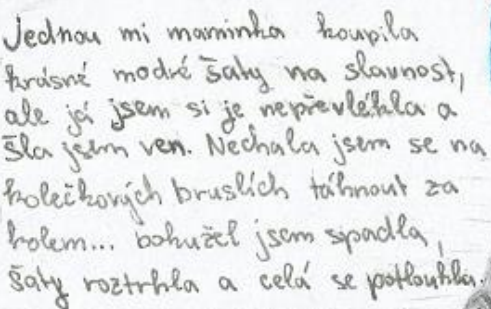 Jednou mi maminka koupila
krásné modré šaty na slavnost,
ale já jsem si je nepřevlékla a
šla jsem ven. Nechala jsem se na
kolečkových bruslích táhnout za
kolem... bohužel jsem spadla,
šaty roztrhla a celá se potloukla.